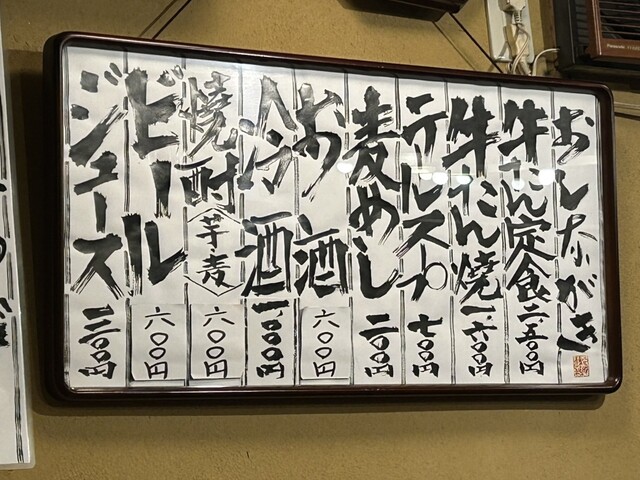 おしながき
牛たん定食 二、五〇〇円
牛たん焼 一、六〇〇円
テールスープ 七〇〇円
麦めし 二〇〇円
お酒 六〇〇円
冷酒 一、〇〇〇円
焼酎 芋・麦 六〇〇円
ビール 六〇〇円
ジュース 二〇〇円
Panasonic